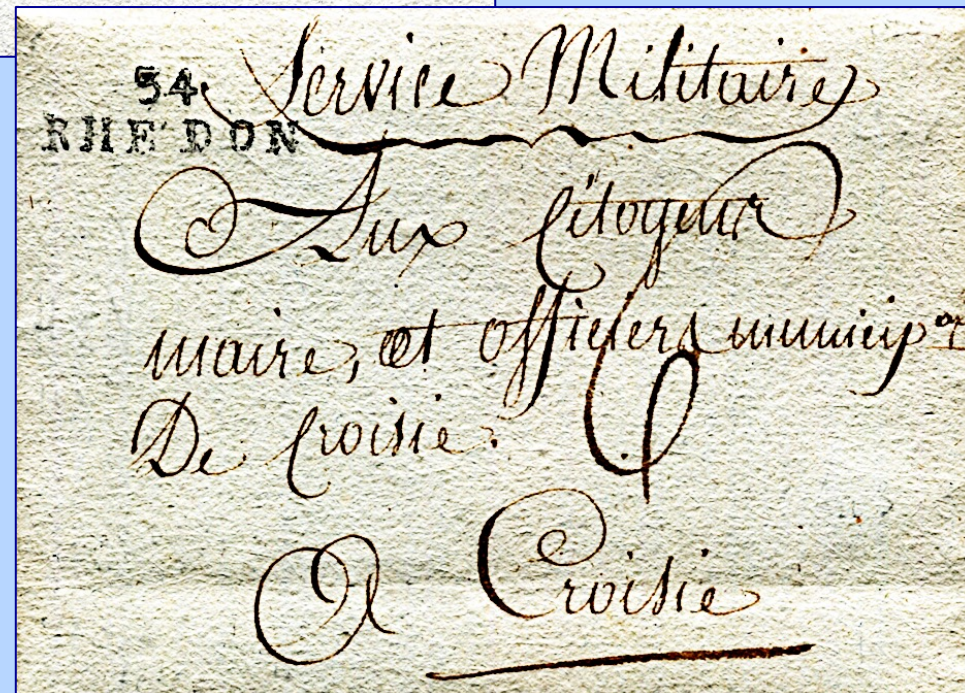 54
RHE'DON
Service Militaire
Aux Citoyens
maire, et officiers municip.aux
De Croisie.
A Croisie